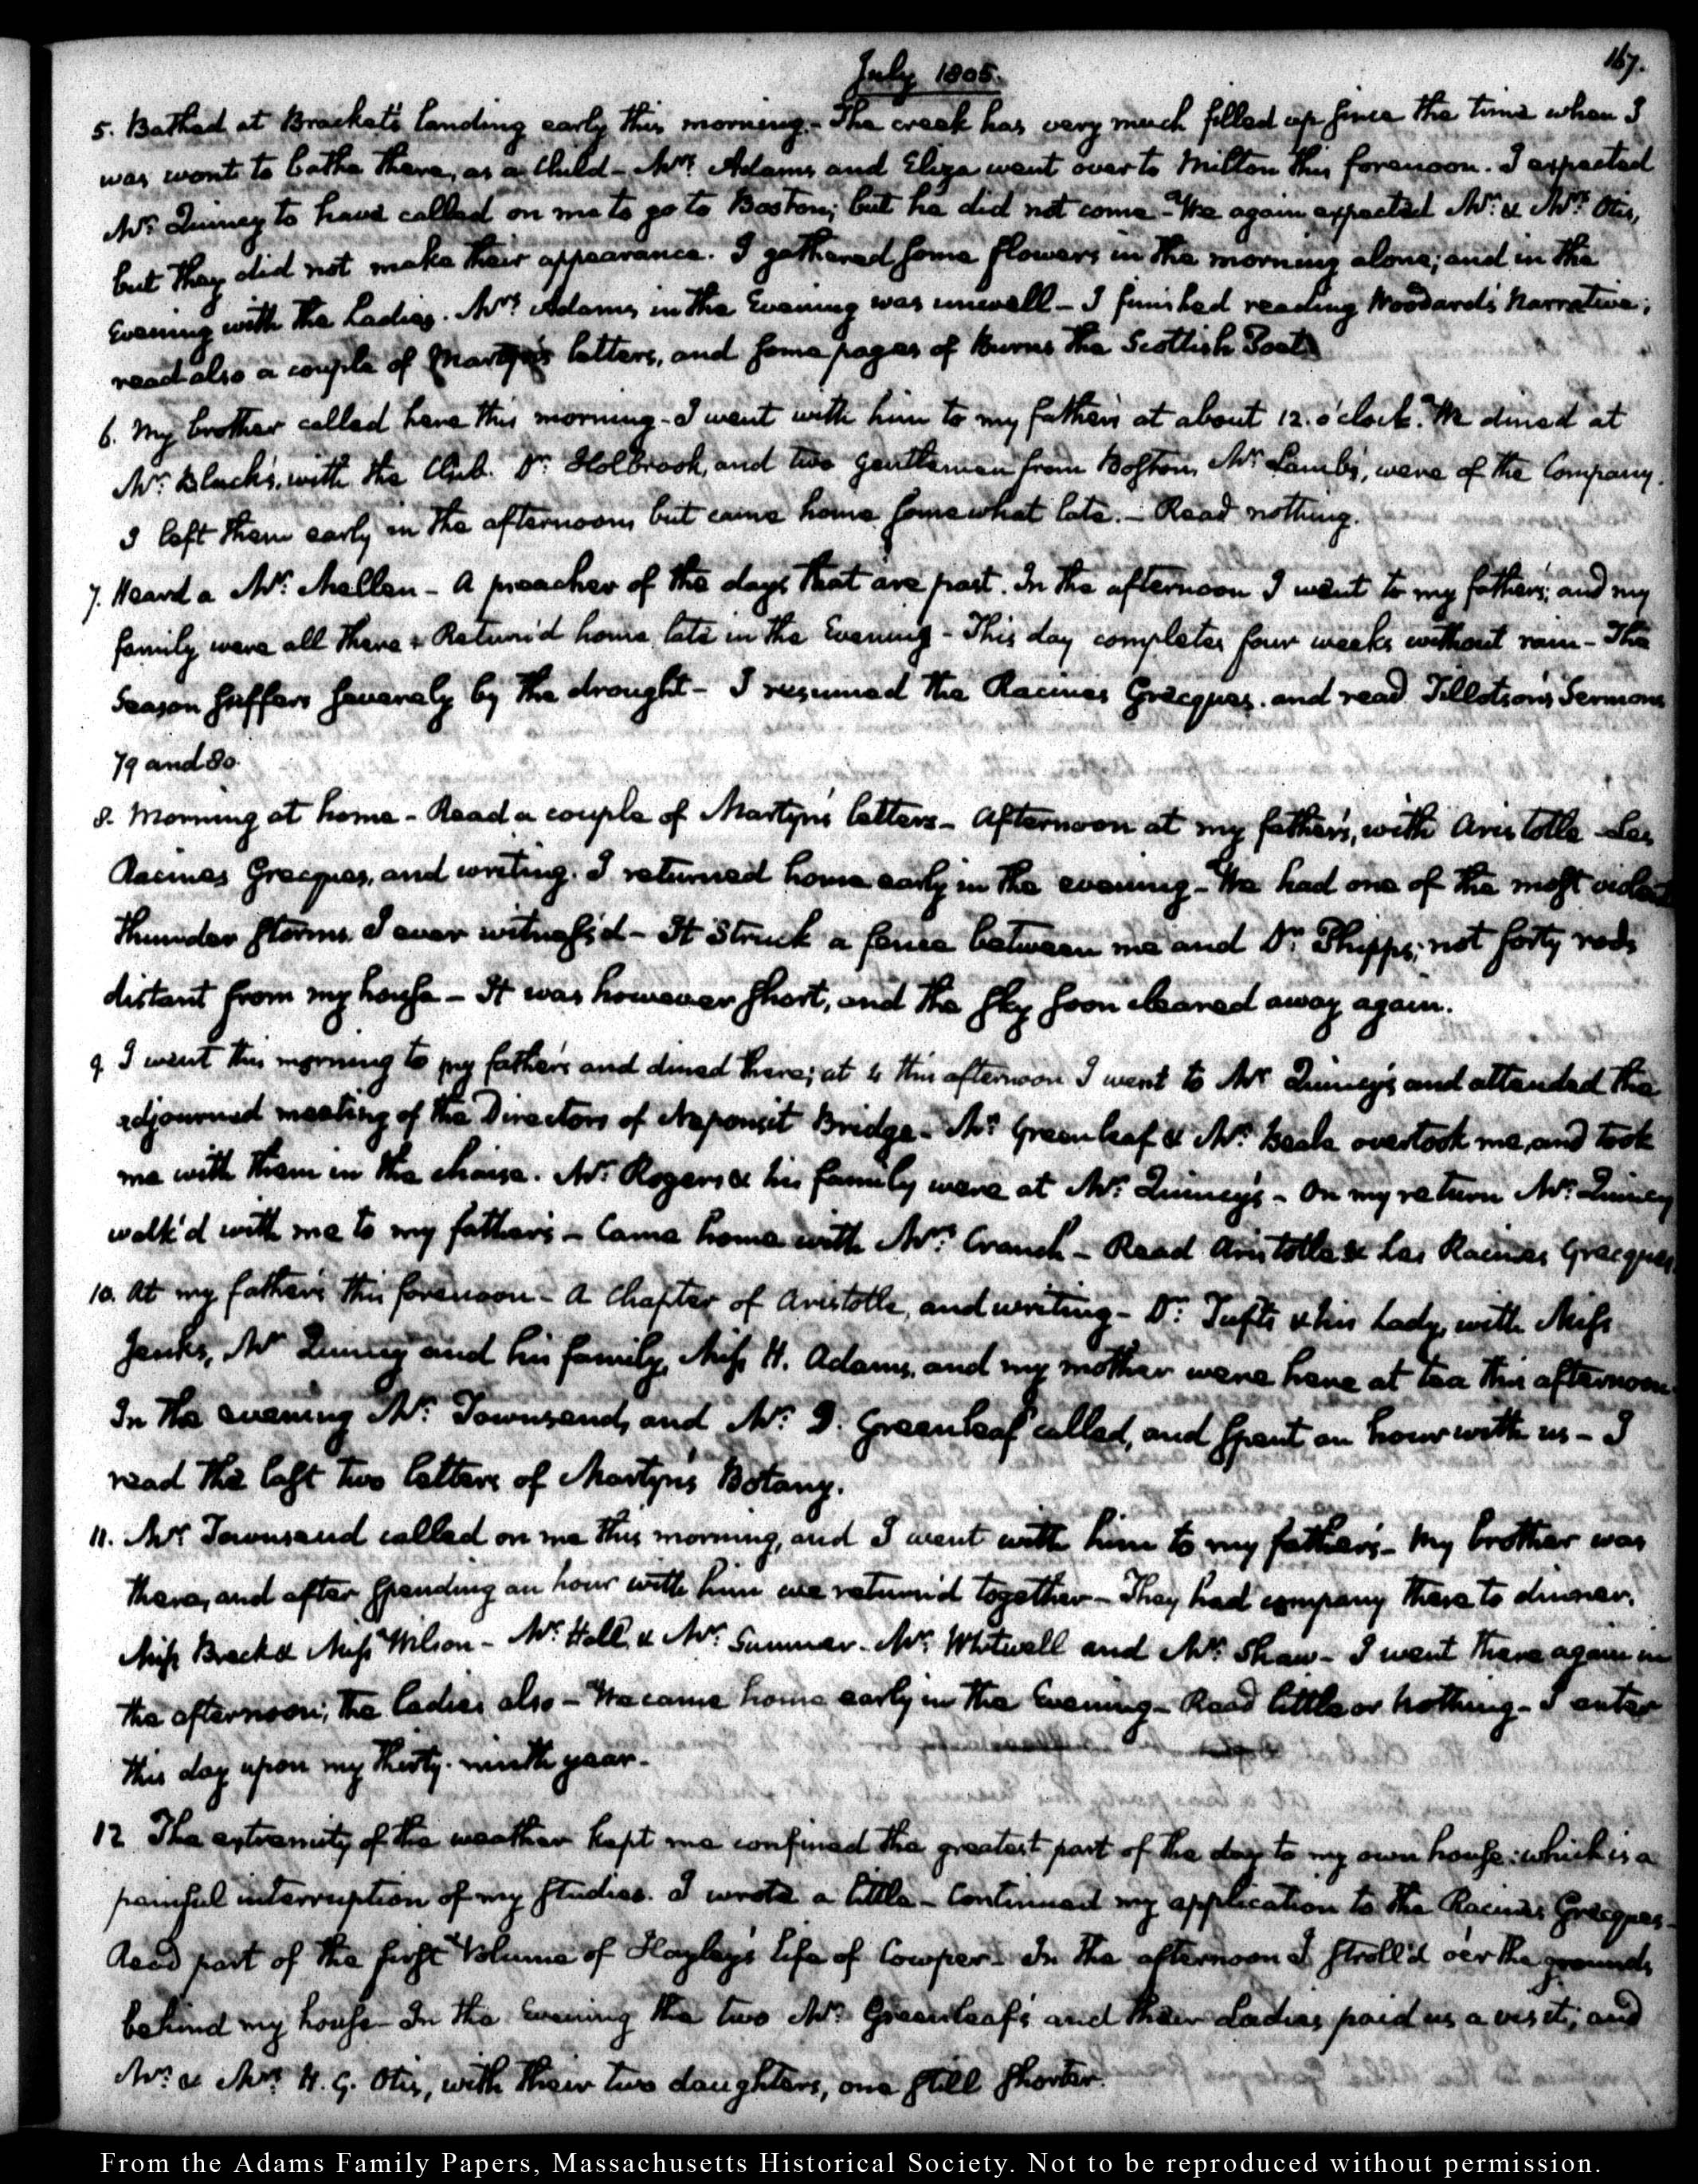 167.
July 1805.
5. Bathed at Bracket's landing early this morning.- The creek has very much filled up since the time when I
was wont to bathe there, as a Child - Mrs. Adams and Eliza went over to Milton this forenoon. I expected
Mr. Quincy to have called on me to go to Boston; but he did not come - We again expected Mr. & Mrs. Otis,
but they did not make their appearance. I gathered some flowers in the morning alone; and in the
Evening with the Ladies. Mrs. Adams in the Evening was unwell - I finished reading Woodard's Narrative;
read also a couple of Martyn's letters, and some pages of Burns the Scottish Poet.
6. My brother called here this morning - I went with him to my father's at about 12. o'clock. We dined at
Mr. Black's, with the Club. Dr. Holbrook, and two gentlemen from Boston, Mr. Lambs, were of the Company.
I left them early in the afternoon, but came home somewhat late. - Read nothing.
7. Heard a Mr. Mellen - A preacher of the days that are past. In the afternoon I went to my father's; and my
family were all there. Return'd home late in the Evening - This day completes four weeks without rain - The
Season suffers severely by the drought - I resumed the Racines Grecques, and read Tillotson's Sermons
79 and 80.
8. Morning at home - Read a couple of Martyn's letters - Afternoon at my father's, with Aristotle - Les
Racines Grecques, and writing. I returned home early in the evening - We had one of the most violent
thunder storms I ever witness'd - It struck a fence between me and Dr. Phipps; not forty rods
distant from my house - It was however short, and the sky soon cleared away again.
9. I went this morning to my father's and dined there; at 4 this afternoon I went to Mr. Quincy's and attended the
adjourned meeting of the Directors of Neponsit Bridge - Mr. Greenleaf & Mr. Beale overtook me, and took
me with them in the chaise. Mr. Rogers & his family were at Mr. Quincy's - On my return Mr. Quincy
walk'd with me to my father's - Came home with Mrs. Cranch - Read Aristotle & Les Racines Grecques.
10. At my father's this forenoon - A Chapter of Aristotle, and writing - Dr. Tufts & his Lady, with Miss
Jenks, Mr. Quincy and his family, Miss H. Adams, and my mother were here at tea this afternoon.
In the evening Mr. Townsend, and Mr. D. Greenleaf called, and spent an hour with us - I
read the last two letters of Martyn's Botany.
11. Mr. Townsend called on me this morning, and I went with him to my father's - My brother was
there, and after spending an hour with him we return'd together - They had company there to dinner.
Miss Breck & Miss Wilson - Mr. Hall, & Mr. Sumner - Mr. Whitwell and Mr. Shaw - I went there again in
the afternoon; the ladies also - We came home early in the Evening - Read little or Nothing - I enter
this day upon my thirty-ninth year -
12. The extremity of the weather kept me confined the greatest part of the day to my own house: which is a
painful interruption of my studies. I wrote a little - Continued my application to the Racines Grecques -
Read part of the first Volume of Hayley's Life of Cowper - In the afternoon I stroll'd o'er the grounds
behind my house - In the Evening the two Mr. Greenleaf's and their Ladies paid us a visit; and
Mr. & Mrs. H. G. Otis, with their two daughters, one still shorter.
From the Adams Family Papers, Massachusetts Historical Society. Not to be reproduced without permission.